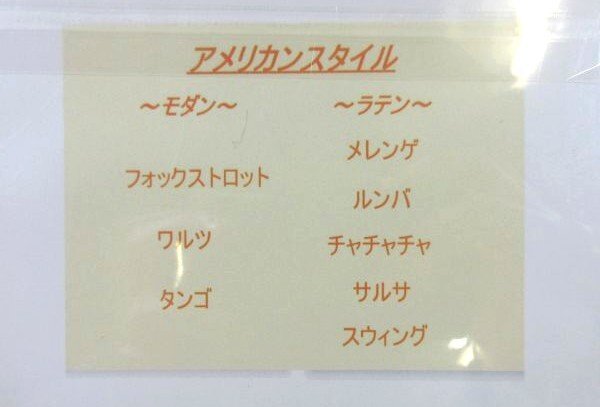 アメリカンスタイル
～モダン～
フォックストロット
ワルツ
タンゴ
～ラテン～
メレンゲ
ルンバ
チャチャチャ
サルサ
スウィング